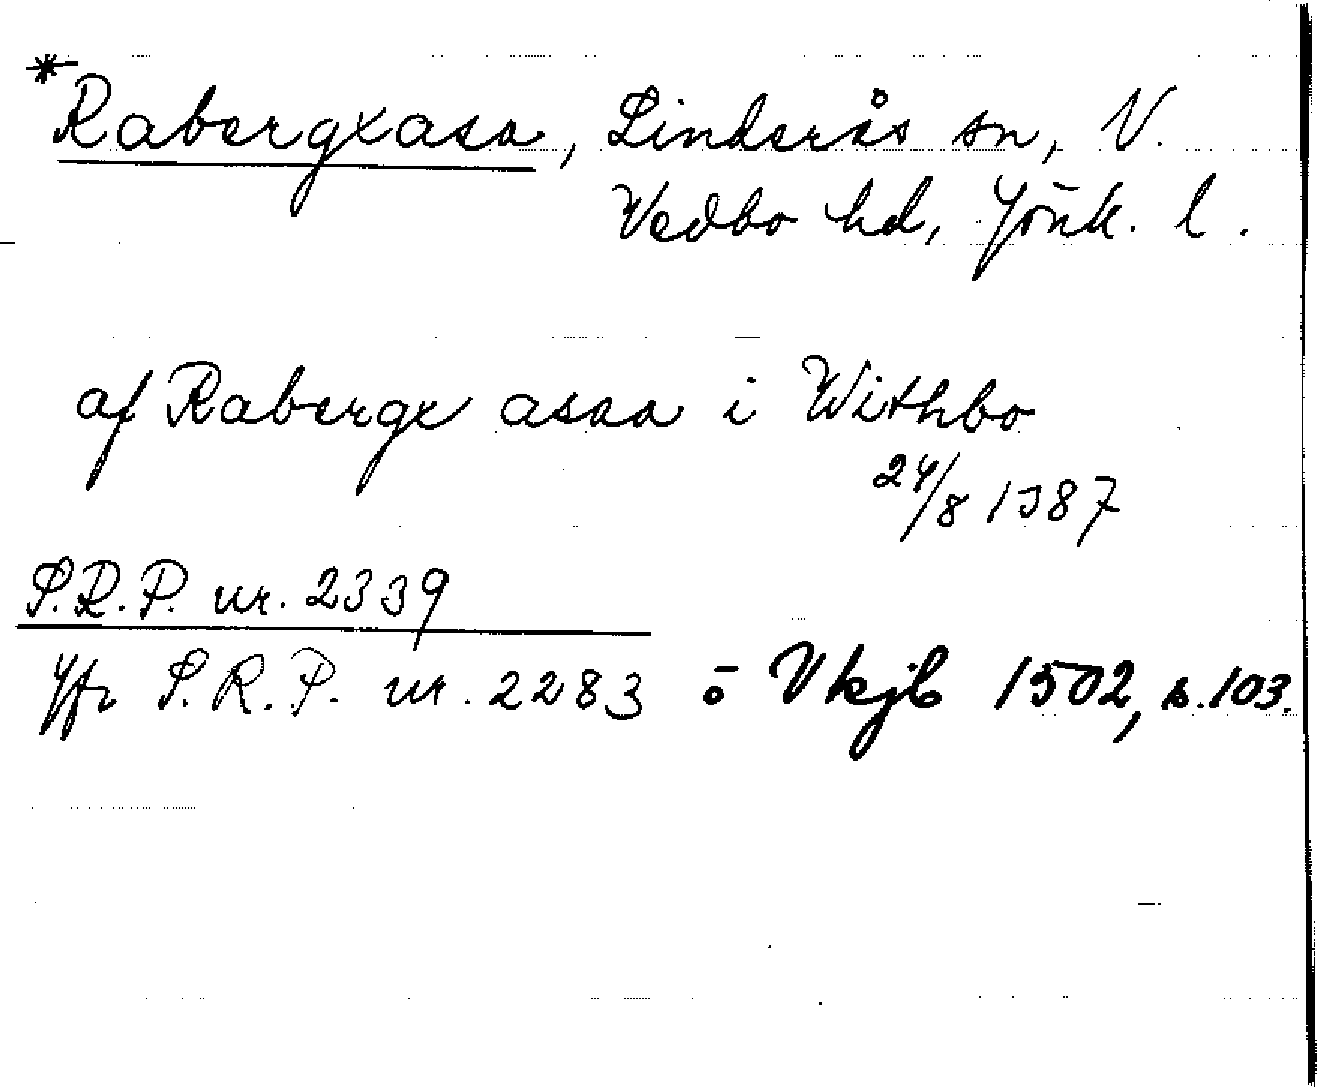 *Rabergxasa, Linderås sn, V.
Vedbo hd, Jönk. l.
af Raberge asaa i Withbo
24/8 1387
S.R.P. nr. 2339
Jfr S.R.P. nr. 2283 ō Vkjb 1502, s. 103.